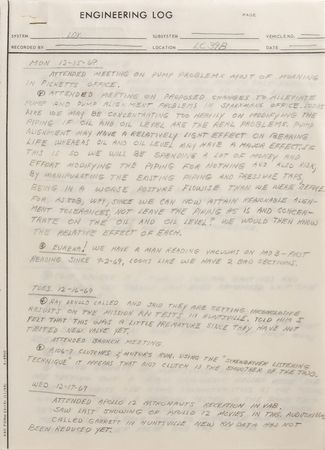 ENGINEERING LOG
PAGE
SYSTEM LOX SUBSYSTEM VEHICLE NO.
RECORDED BY LOCATION LC 39B
MON 12-15-69
ATTENDED MEETING ON PUMP PROBLEMS MOST OF MORNING
IN PICKETTS OFFICE.
ATTENDED MEETING ON PROPOSED CHANGES TO ALLEVIATE
PUMP AND PUMP ALIGNMENT PROBLEMS IN SPARKMANS OFFICE. LOOKS
LIKE WE MAY BE CONCENTRATING TOO HEAVILY ON MODIFYING THE
PIPING IF OIL AND OIL LEVEL ARE THE REAL PROBLEMS. PUMP
ALIGNMENT MAY HAVE A RELATIVELY LIGHT EFFECT ON BEARING
LIFE WHEREAS OIL AND OIL LEVEL MAY HAVE A MAJOR EFFECT. IF
THIS IS SO WE WILL BE SPENDING A LOT OF MONEY AND
EFFORT MODIFYING THE PIPING FOR NOTHING AND ALSO RISK,
BY MANIPULATING THE EXISTING PIPING AND PRESSURE TAPS,
BEING IN A WORSE POSTURE FLOWISE THAN WE WERE BEFORE.
FOR AS508, WHY, SINCE WE CAN NOW ATTAIN REASONABLE ALIGN-
MENT TOLERANCES, NOT LEAVE THE PIPING AS IS AND CONCEN-
TRATE ON THE OIL AND OIL LEVEL? WE WOULD THEN KNOW
THE RELATIVE EFFECT OF EACH.
EUREKA! WE HAVE A MAN READING VACUUMS ON PAD B - FIRST
READING SINCE 9-2-69, LOOKS LIKE WE HAVE 2 BAD SECTIONS.
TUES 12-16-69
RAY ARNOLD CALLED AND SAID THEY ARE GETTING INCONCLUSIVE
RESULTS ON THE MISSION RV TESTS IN HUNTSVILLE. TOLD HIM I
FELT THAT THIS WAS A LITTLE PREMATURE SINCE THEY HAVE NOT
TESTED NEW VALVE YET.
ATTENDED BRANCH MEETING.
CLUTCHES & MOTORS RUN, USING THE "SCREWDRIVER LISTENING
TECHNIQUE" IT APPEARS THAT CLUTCH IS THE SMOOTHER OF THE TWO.
WED 12-17-69
ATTENDED APOLLO 12 ASTRONAUTS RECEPTION IN VAB.
SAW LAST SHOWING OF APOLLO 12 MOVIES IN TNG. AUDITORIUM
CALLED GARRETT IN HUNTSVILLE NEW RV DATA HAS NOT
BEEN REDUCED YET.